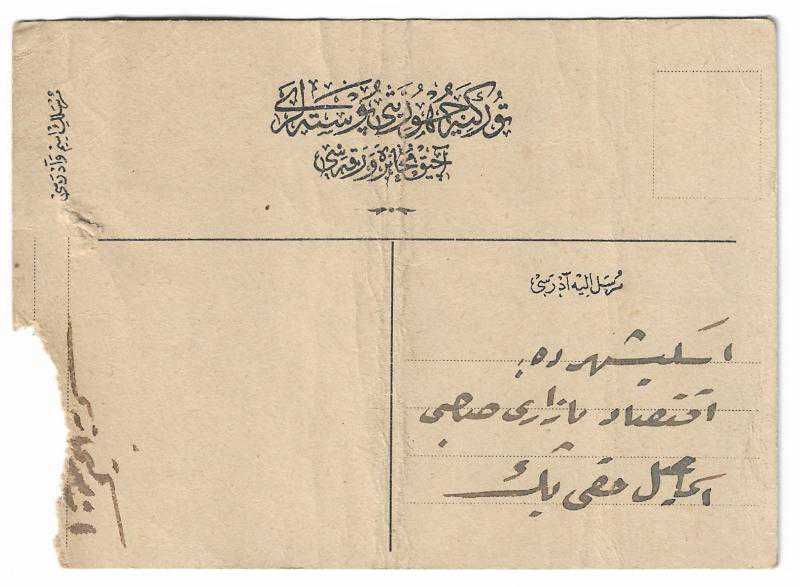 توركيه جمهوريتى پوسته لرى
آچيق مخابره ورقه سى
مرسلك اسم وآدرسى
مرسل اليه آدرسى
اسكيشهرده:
اقتصاد بازارى صاحبى
اسماعيل حقى بك